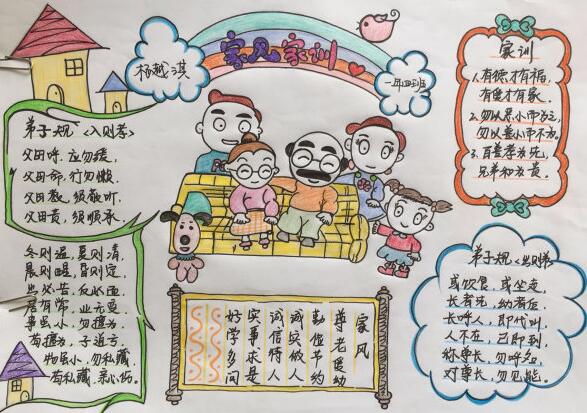 家风家训
杨越淇
一年四班
弟子规《入则孝》
父母呼,应勿缓,
父母命,行勿懒,
父母教,须敬听,
父母责,须顺承,
冬则温,夏则清,
晨则省,昏则定,
出必告,反必面,
居有常,业无变
事虽小,勿擅为,
苟擅为,子道亏,
物虽小,勿私藏,
苟私藏,亲心伤。
家训
1.有德才有福,
有俭才有家。
2.勿以恶小而为之,
勿以善小而不为。
3.百善孝为先,
兄弟和为贵。
家风
尊老爱幼
勤俭节约
诚实做人
诚信待人
实事求是
好学多问
弟子规《出则弟》
或饮食,或坐走,
长者先,幼者后,
长呼人,即代叫,
人不在,己即到,
称尊长,勿呼名,
对尊长,勿见能。